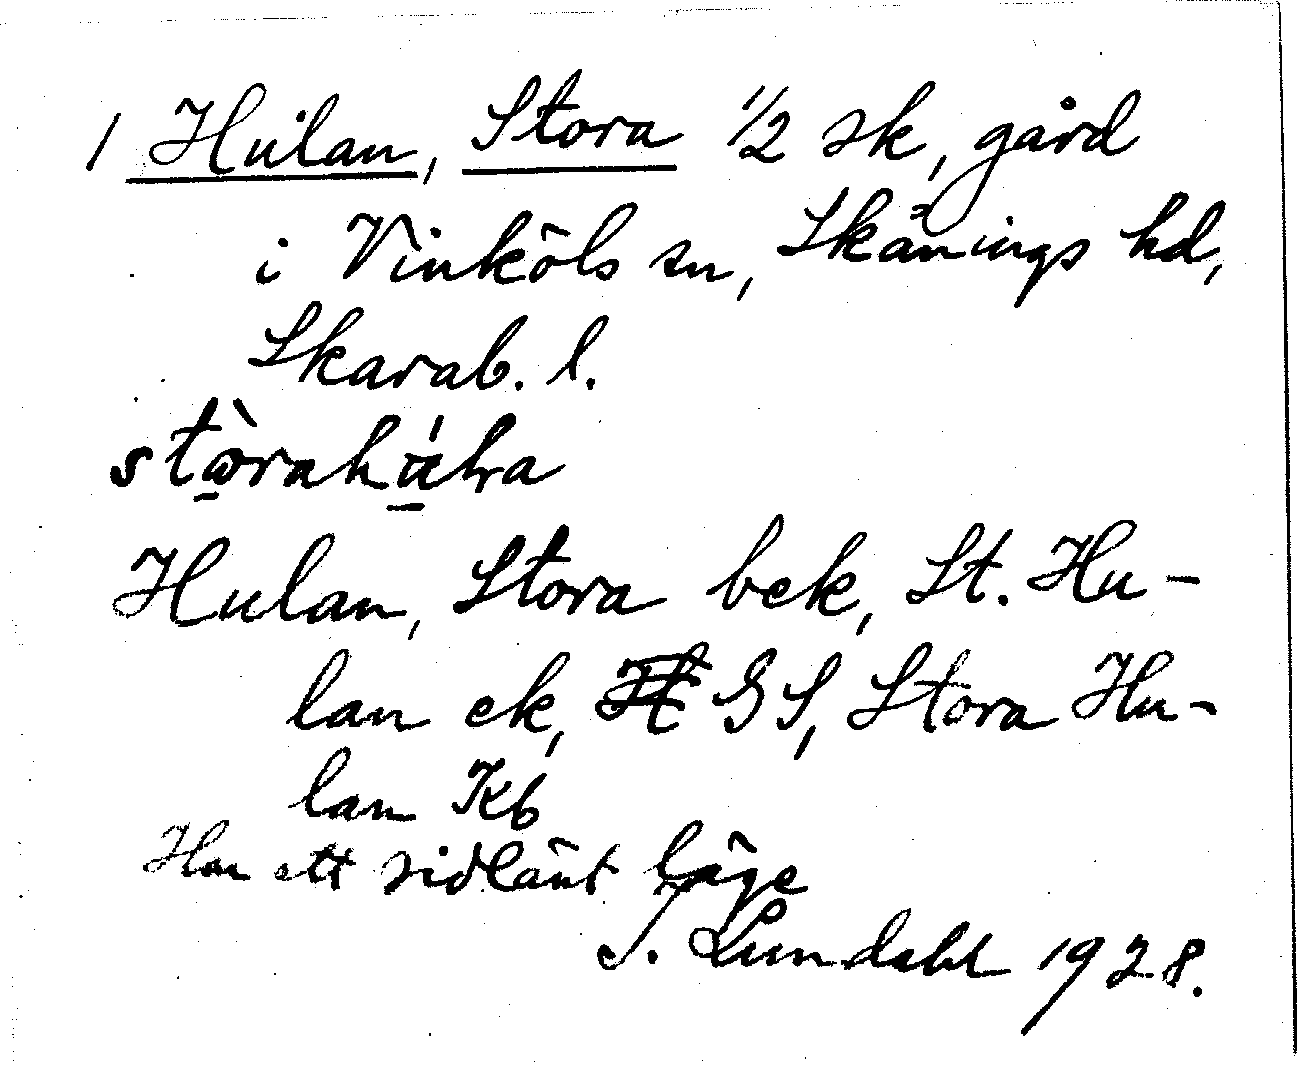 1 Hulan, Stora 1/2 sk, gård
i Vinköls sn, Skånings hd,
Skarab. l.
Hulan, Stora bek, St. Hu-
lan ek, GS, Stora Hu-
lan Kb
Har ett sidlänt läge
J. Lundahl 1928.